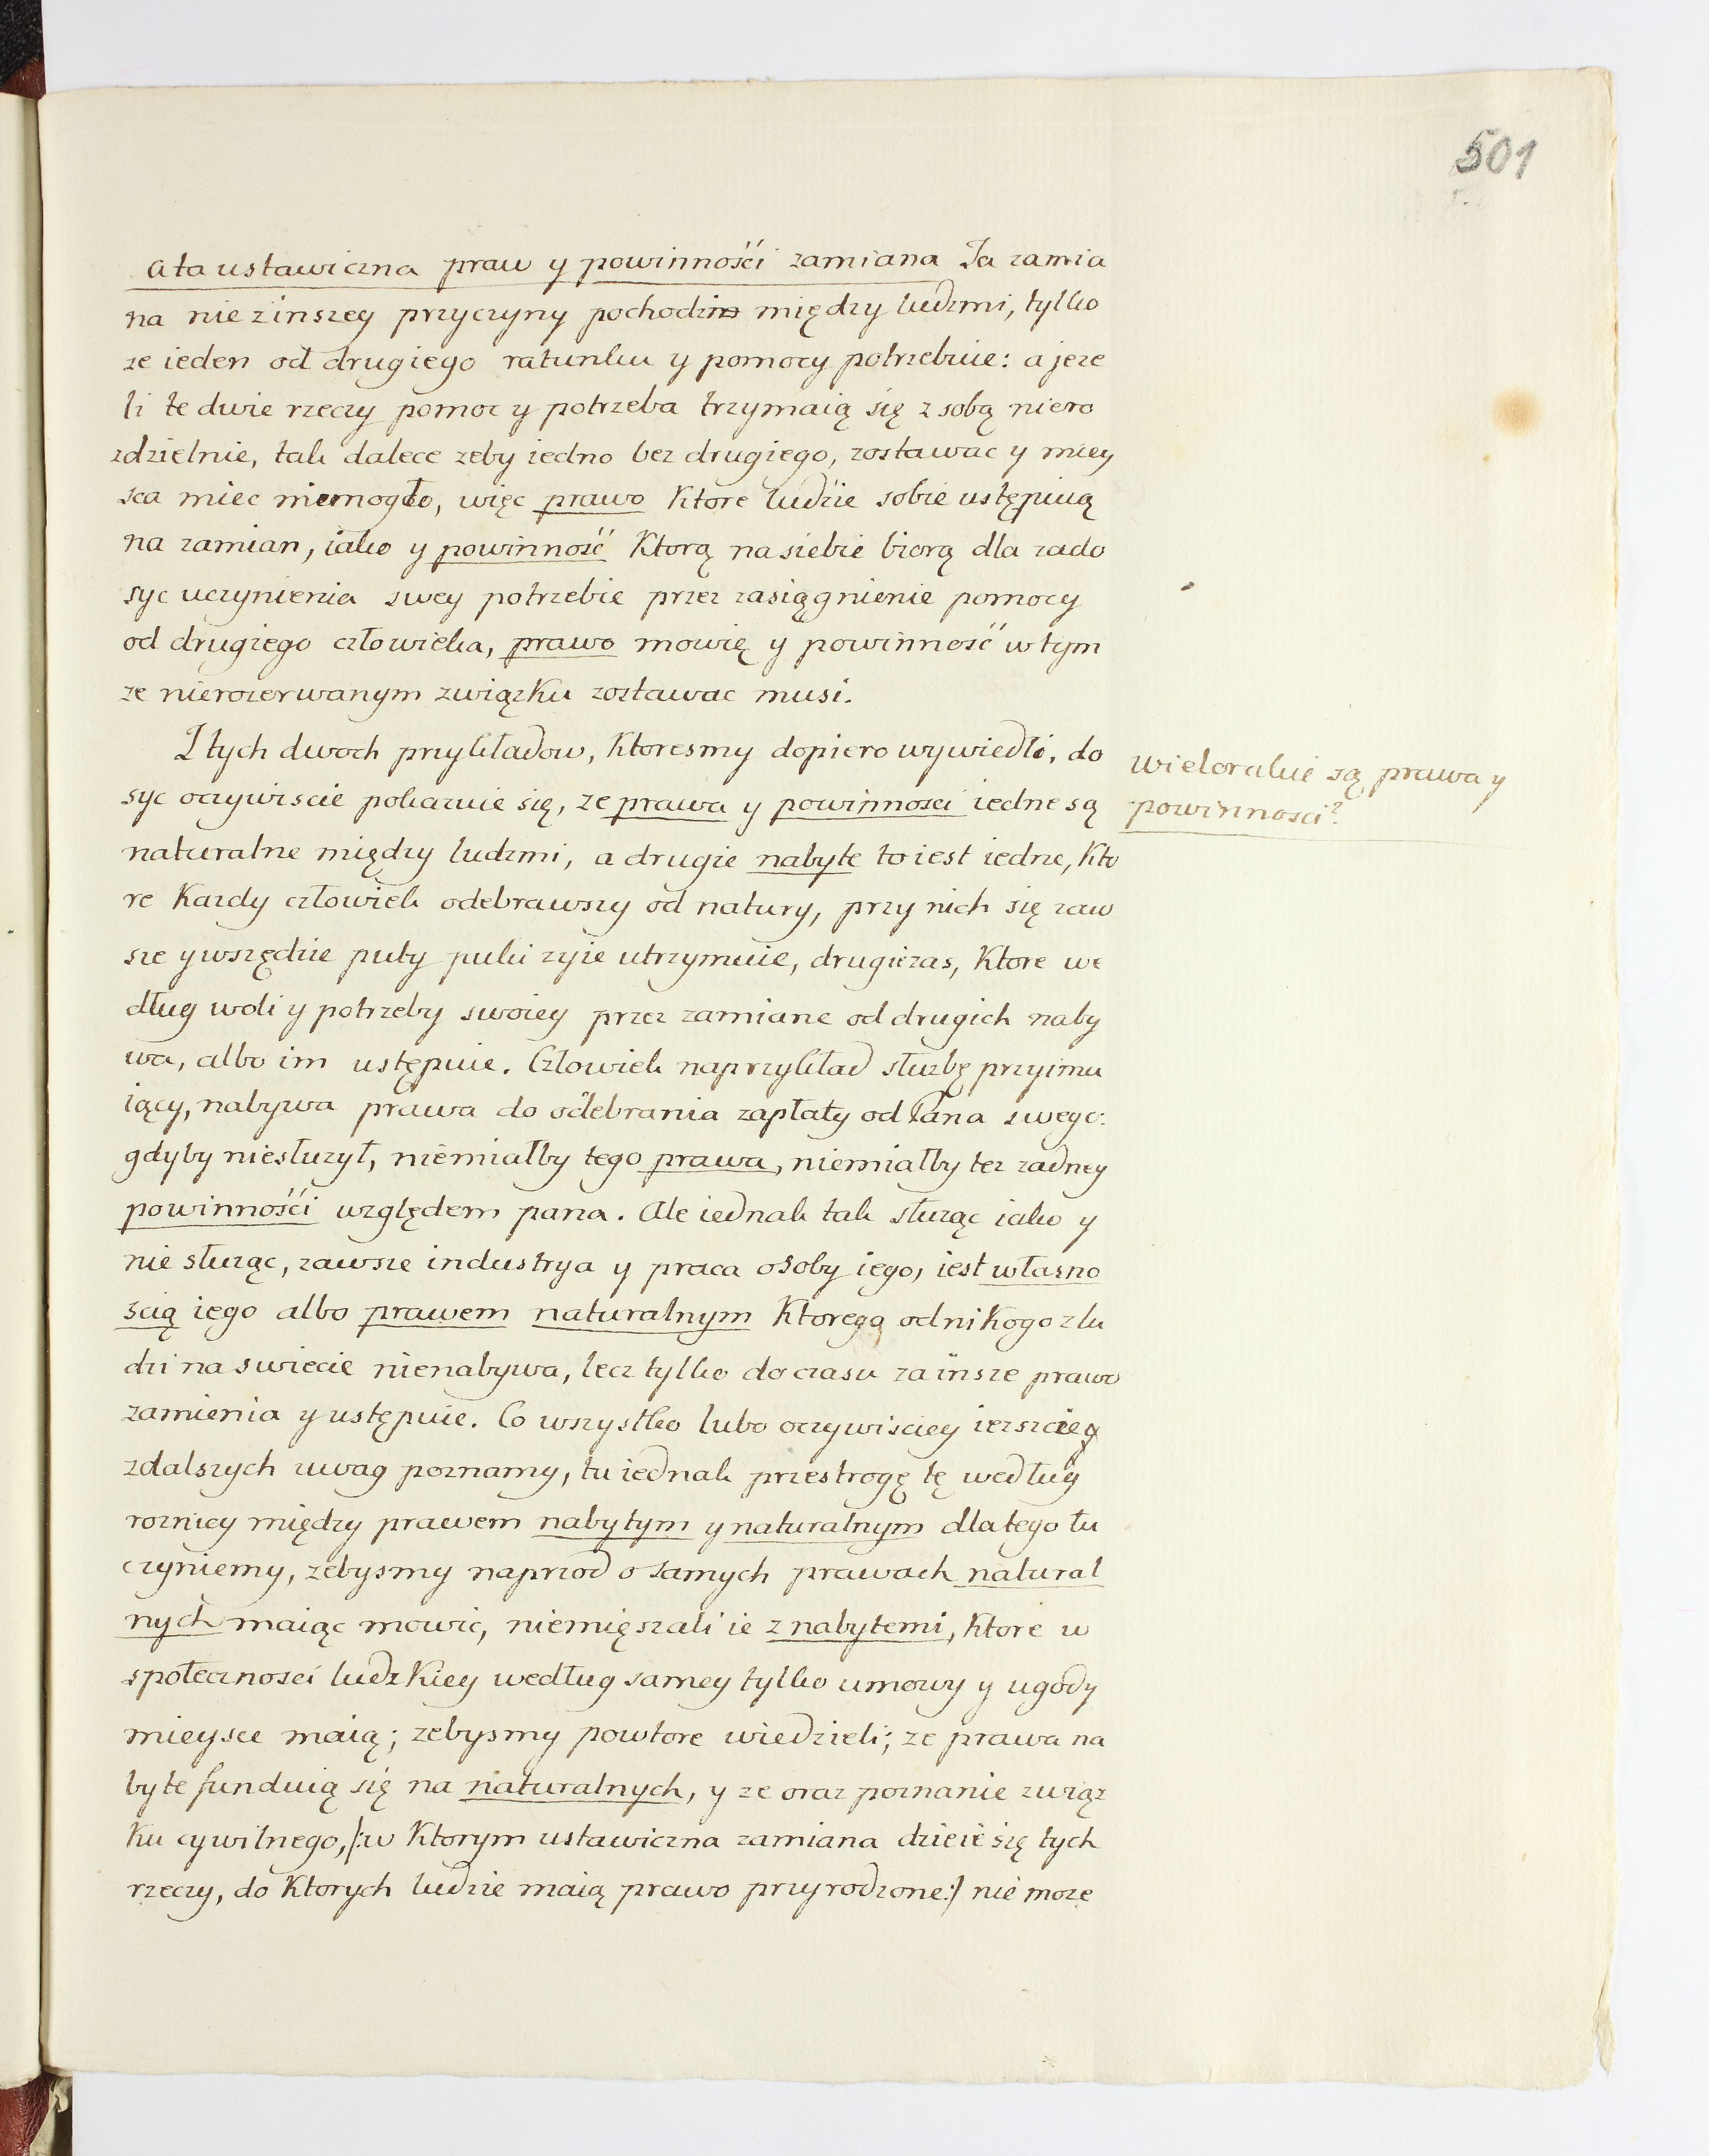 501
a ta ustawiczna praw y powinnośći zamiana Ta zamia
na nie z inszey przyczyny pochodzi między ludzmi, tylko
ze ieden od drugiego ratunku y pomocy potrzebuie: a jeze
li te dwie rzeczy pomoc y potrzeba trzymaią się z sobą niero
zdzielnie, tak dalece zeby iedno bez drugiego, zostawac y miey
sca miec niemogło, więc prawo Ktore ludzie sobie ustępuią
na zamian, iako y powinność Ktorą na siebie biorą dla zado
syc uczynienia swey potrzebie przez zasiągnienie pomocy
od drugiego człowieka, prawo mowię y powinność w tym
ze nierozerwanym związKu zostawac musi.
Z tych dwoch przykładow, Ktoresmy dopiero wywiedli, do
syc oczywiscie pokazuie się, ze prawa y powinnosci iedne są
naturalne między ludzmi, a drugie nabyte to iest iedne, Kto
re Kazdy człowiek odebrawszy od natury, przy nich się zaw
sze y wszędzie puty puki zyie utrzymuie, drugiezas, Ktore we
dług woli y potrzeby swoiey przez zamiane od drugich naby
wa, albo im ustępuie. Człowiek naprzykład służbę przyimu
iący, nabywa prawa do odebrania zapłaty od Pana swego:
gdyby niesłuzył, niemiałby tego prawa, niemiałby tez zadney
powinnośći względem pana. Ale iednak tak słuząc iako y
nie słuząc, zawsze industrya y praca osoby iego, iest własno
scią iego albo prawem naturalnym Ktorego od niKogo z lu
dzi na swiecie nienabywa, lecz tylko do czasu za insze prawo
zamienia y ustępuie. Co wszystko lubo oczywisciey ieszcze
z dalszych uwag poznamy, tu iednak przestrogę tę według
roznicy między prawem nabytym y naturalnym dlatego tu
czyniemy, zebysmy naprzod o samych prawach natural
nych maiąc mowic, niemięszali ie z nabytemi, Ktore w
społecznosci ludzKiey według samey tylko umowy y ugody
mieysce maią; zebysmy powtore wiedzieli; ze prawa na
byte funduią się na naturalnych, y ze oraz poznanie związ
Ku cywilnego, /:w Ktorym ustawiczna zamiana dzieie się tych
rzeczy, do Ktorych ludzie maią prawo przyrodzone:/ nie moze
wielorakie są prawa y
powinnosci?